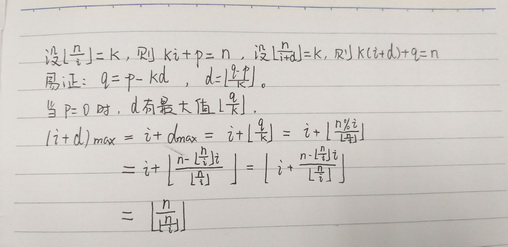 设⌊n/i⌋=k, 则 ki+p=n, 设⌊n/(i+d)⌋=k, 则 k(i+d)+q=n
易证: q=p-kd, d=⌊(q-p)/k⌋。
当 p=0 时, d有最大值⌊q/k⌋.
(i+d)max = i+dmax = i+⌊q/k⌋ = i+⌊(n%i)/⌊n/i⌋⌋
= i+⌊(n-⌊n/i⌋i)/⌊n/i⌋⌋ = ⌊i+(n-⌊n/i⌋i)/⌊n/i⌋⌋
= ⌊n/⌊n/i⌋⌋